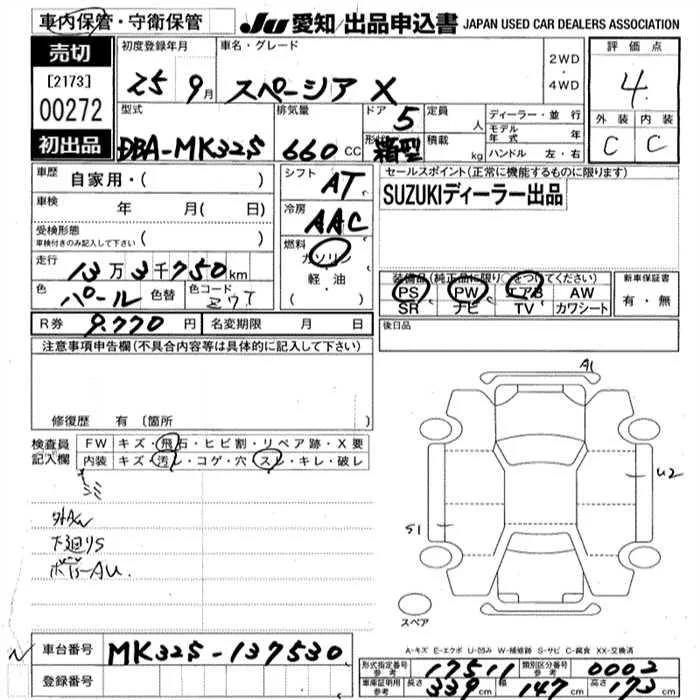 車内保管・守衛保管
JU 愛知/出品申込書 JAPAN USED CAR DEALERS ASSOCIATION
売切
[2173]
00272
初出品
初度登録年月 車名・グレード
25 9月 スペーシア X
2WD・4WD
評価点
4
外装 内装
C C
型式 排気量 ドア 定員 人
DBA-MK32S 660cc 5
形状 箱型 積載 kg
ディーラー・並行
モデル年式 年
ハンドル 左・右
車歴 自家用・( )
シフト AT
セールスポイント(正常に機能するものに限ります)
SUZUKIディーラー出品
車検 年 月( 日)
冷房 AAC
受検形態
車検付きのみ記入して下さい ( )
燃料 ガソリン
軽・油
走行 13万3千750km
色 パール 色替 色コード
装備品(純正品に限り○をつけてください)
PS PW エアB AW
SR ナビ TV カワシート
新車保証書
有・無
R券 9.770円 名変期限 月 日
後日品
注意事項申告欄(不具合内容等は具体的に記入して下さい)
修復歴 有 〔箇所 〕
検査員記入欄
FW キズ・飛石・ヒビ割・リペア跡・X要
内装 キズ・汚レ・コゲ・穴・スレ・キレ・破レ
外AW
下廻りS
A1
U2
S1
スペア
A-キズ E-エクボ U-凹み W-補修跡 S-サビ C-腐食 XX-交換済
車台番号 MK32S-137530
登録番号
形式指定番号 参考 17511 類別区分番号 参考 0002
車庫証明用 参考 長さ 339cm 幅 147cm 高さ 173cm